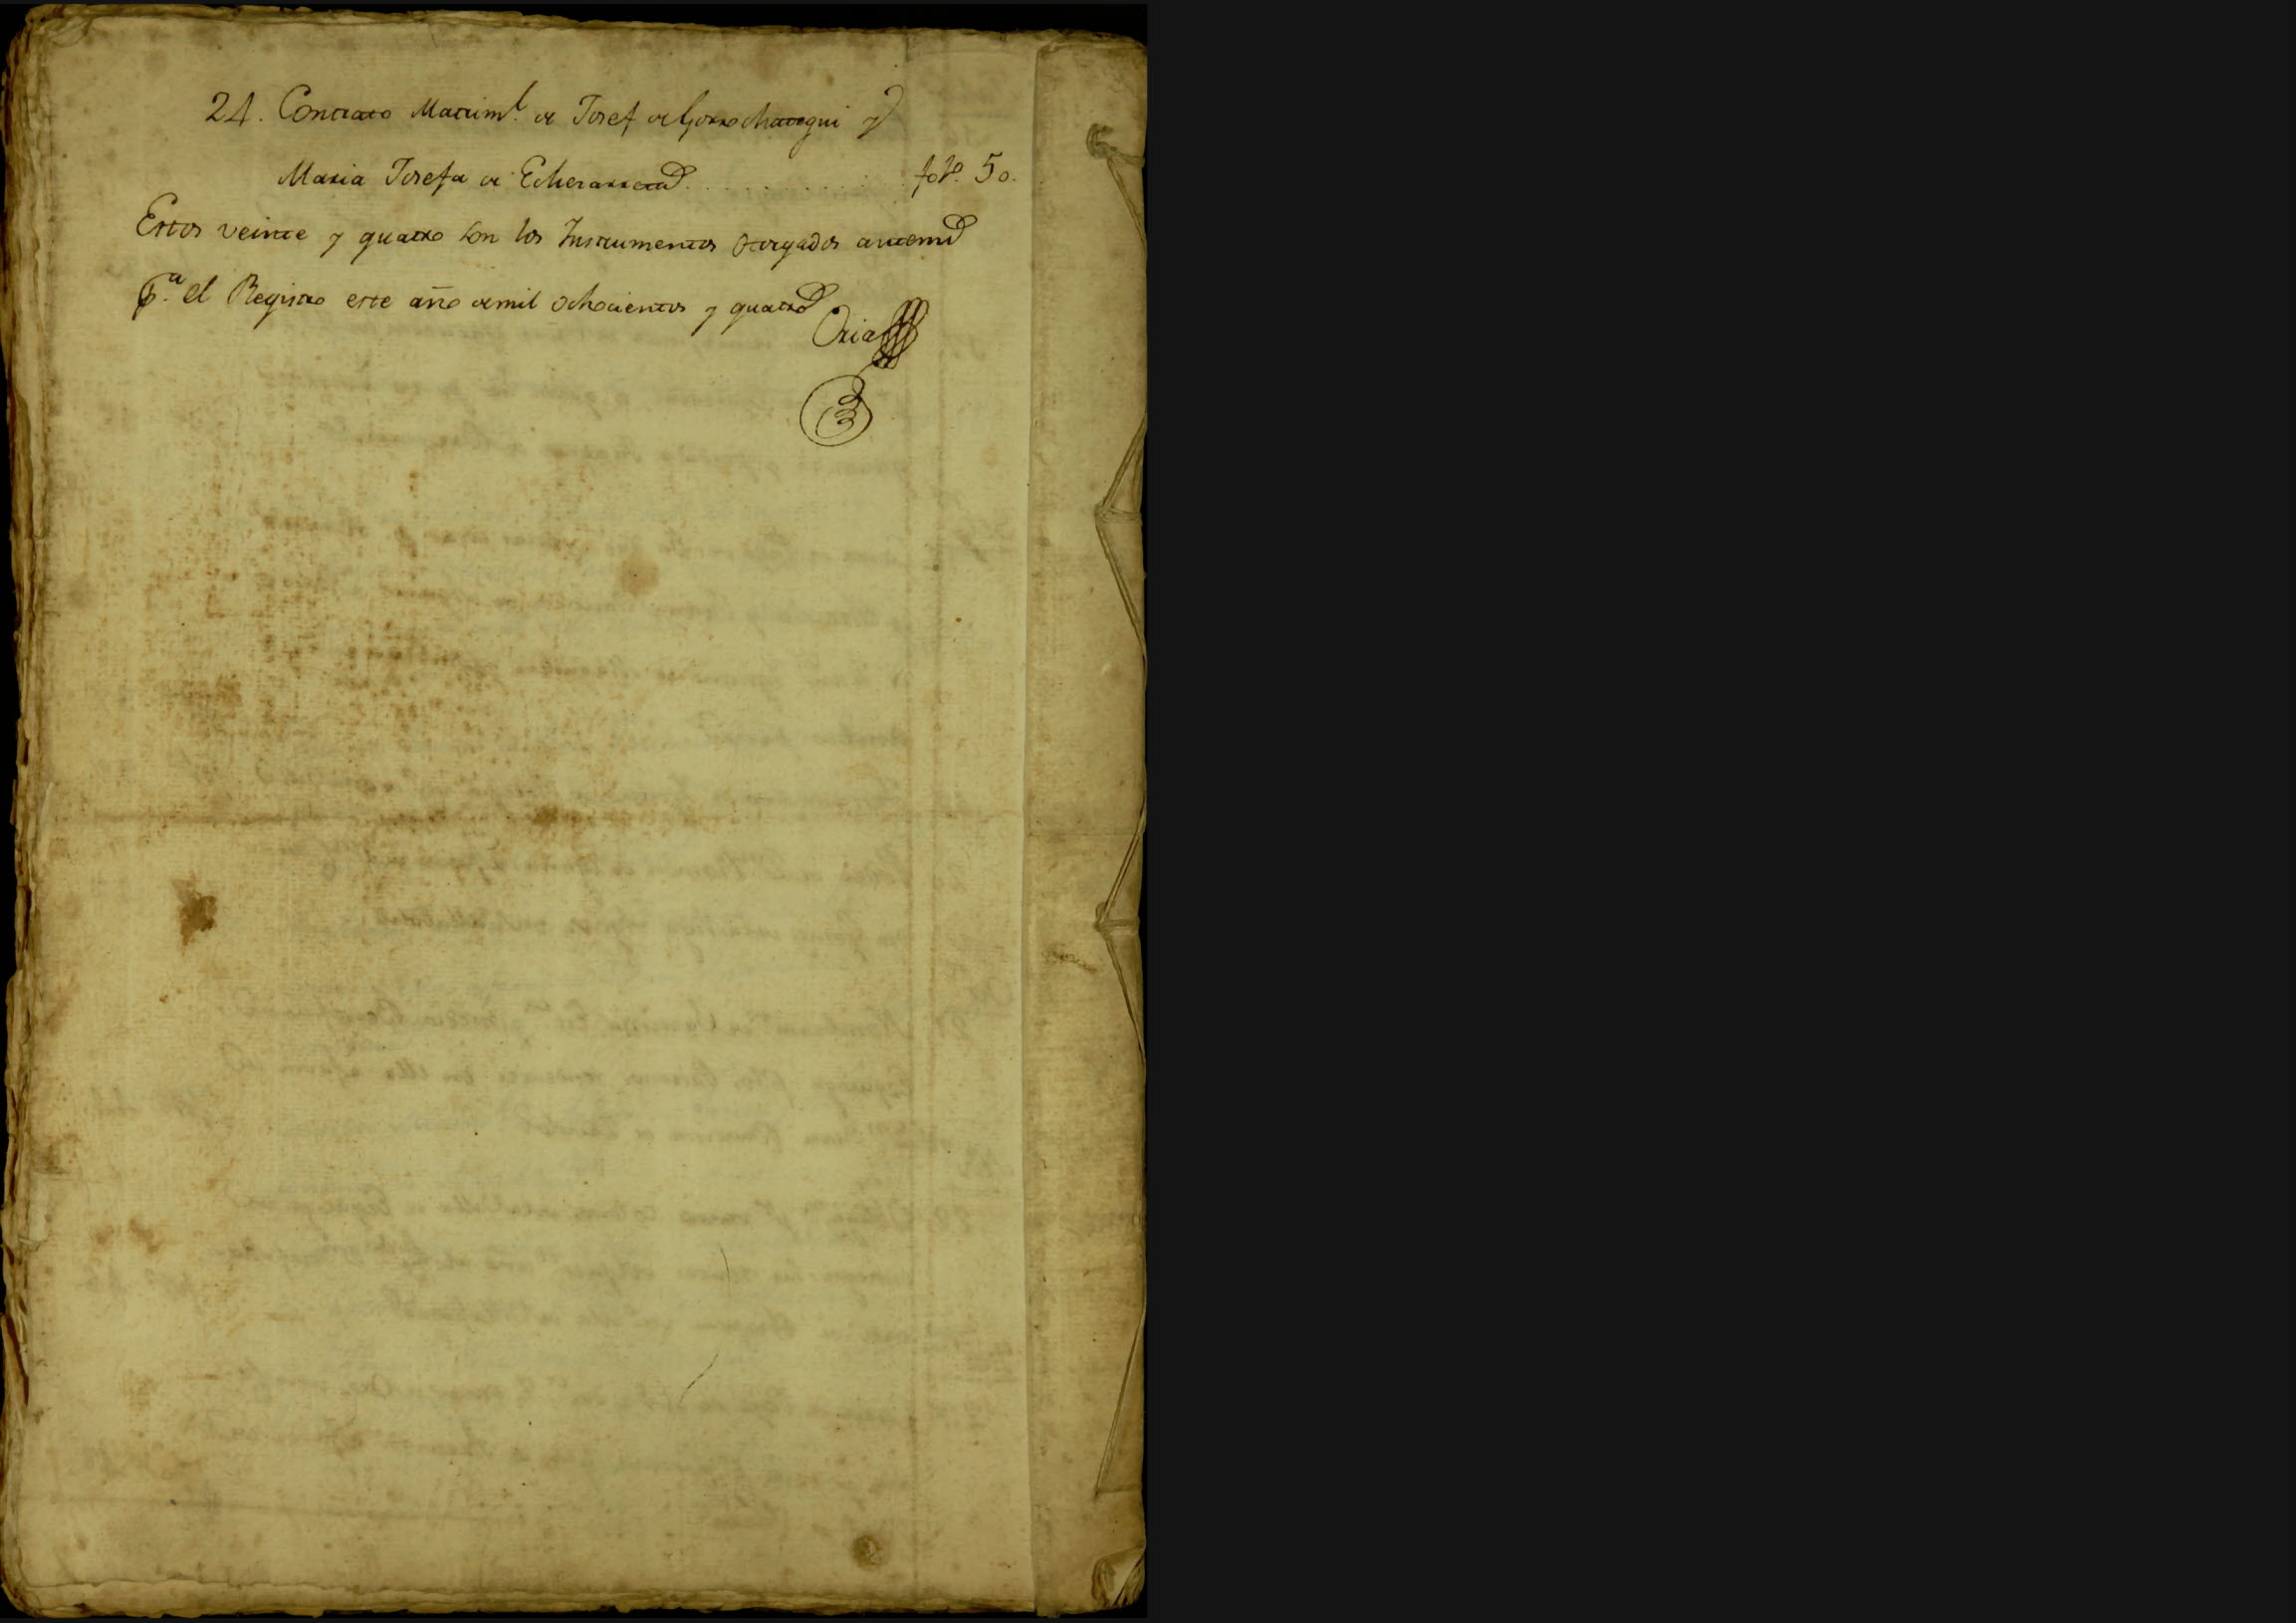 24. Contrato Matrim.l de Josef de Gorrochategui y
Maria Josefa de Echevarreta . . . . . . . . . . fol.o 50.
Estos veinte y quatro son los Instrumentos otorgados antemi
p.a el Registro este año de mil ochocientos y quatro
Oria